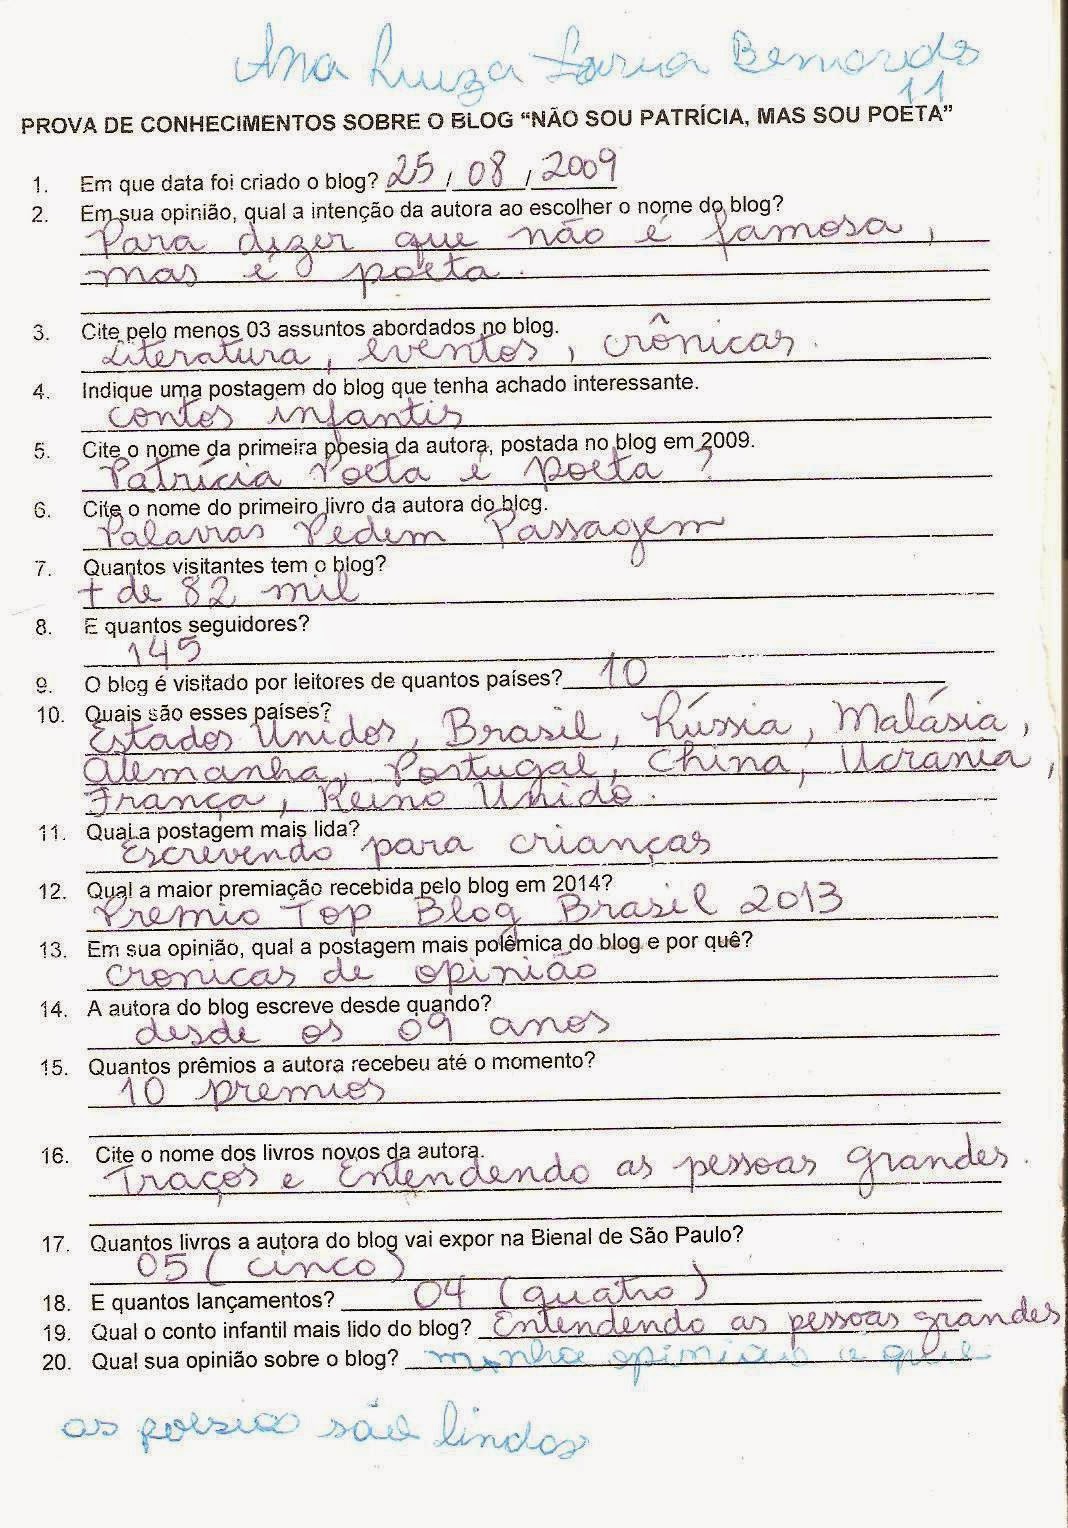 Ana Luiza Faria Bernardes
11
PROVA DE CONHECIMENTOS SOBRE O BLOG “NÃO SOU PATRÍCIA, MAS SOU POETA”
1. Em que data foi criado o blog? 25/08/2009
2. Em sua opinião, qual a intenção da autora ao escolher o nome do blog?
Para dizer que não é famosa,
mas é poeta.
3. Cite pelo menos 03 assuntos abordados no blog.
Literatura, eventos, crônicas.
4. Indique uma postagem do blog que tenha achado interessante.
contos infantis
5. Cite o nome da primeira poesia da autora, postada no blog em 2009.
Patrícia Poeta é poeta?
6. Cite o nome do primeiro livro da autora do blog.
Palavras Pedem Passagem
7. Quantos visitantes tem o blog?
+ de 82 mil
8. E quantos seguidores?
145
9. O blog é visitado por leitores de quantos países? 10
10. Quais são esses países?
Estados Unidos, Brasil, Rússia, Malásia,
Alemanha, Portugal, China, Ucrânia,
França, Reino Unido.
11. Qual a postagem mais lida?
Escrevendo para crianças
12. Qual a maior premiação recebida pelo blog em 2014?
Premio Top Blog Brasil 2013
13. Em sua opinião, qual a postagem mais polêmica do blog e por quê?
cronicas de opinião
14. A autora do blog escreve desde quando?
desde os 09 anos
15. Quantos prêmios a autora recebeu até o momento?
10 premios
16. Cite o nome dos livros novos da autora.
Traços e Entendendo as pessoas grandes.
17. Quantos livros a autora do blog vai expor na Bienal de São Paulo?
05 (cinco)
18. E quantos lançamentos? 04 (quatro)
19. Qual o conto infantil mais lido do blog? Entendendo as pessoas grandes
20. Qual sua opinião sobre o blog? minha opiniao e que
as poesias são lindas